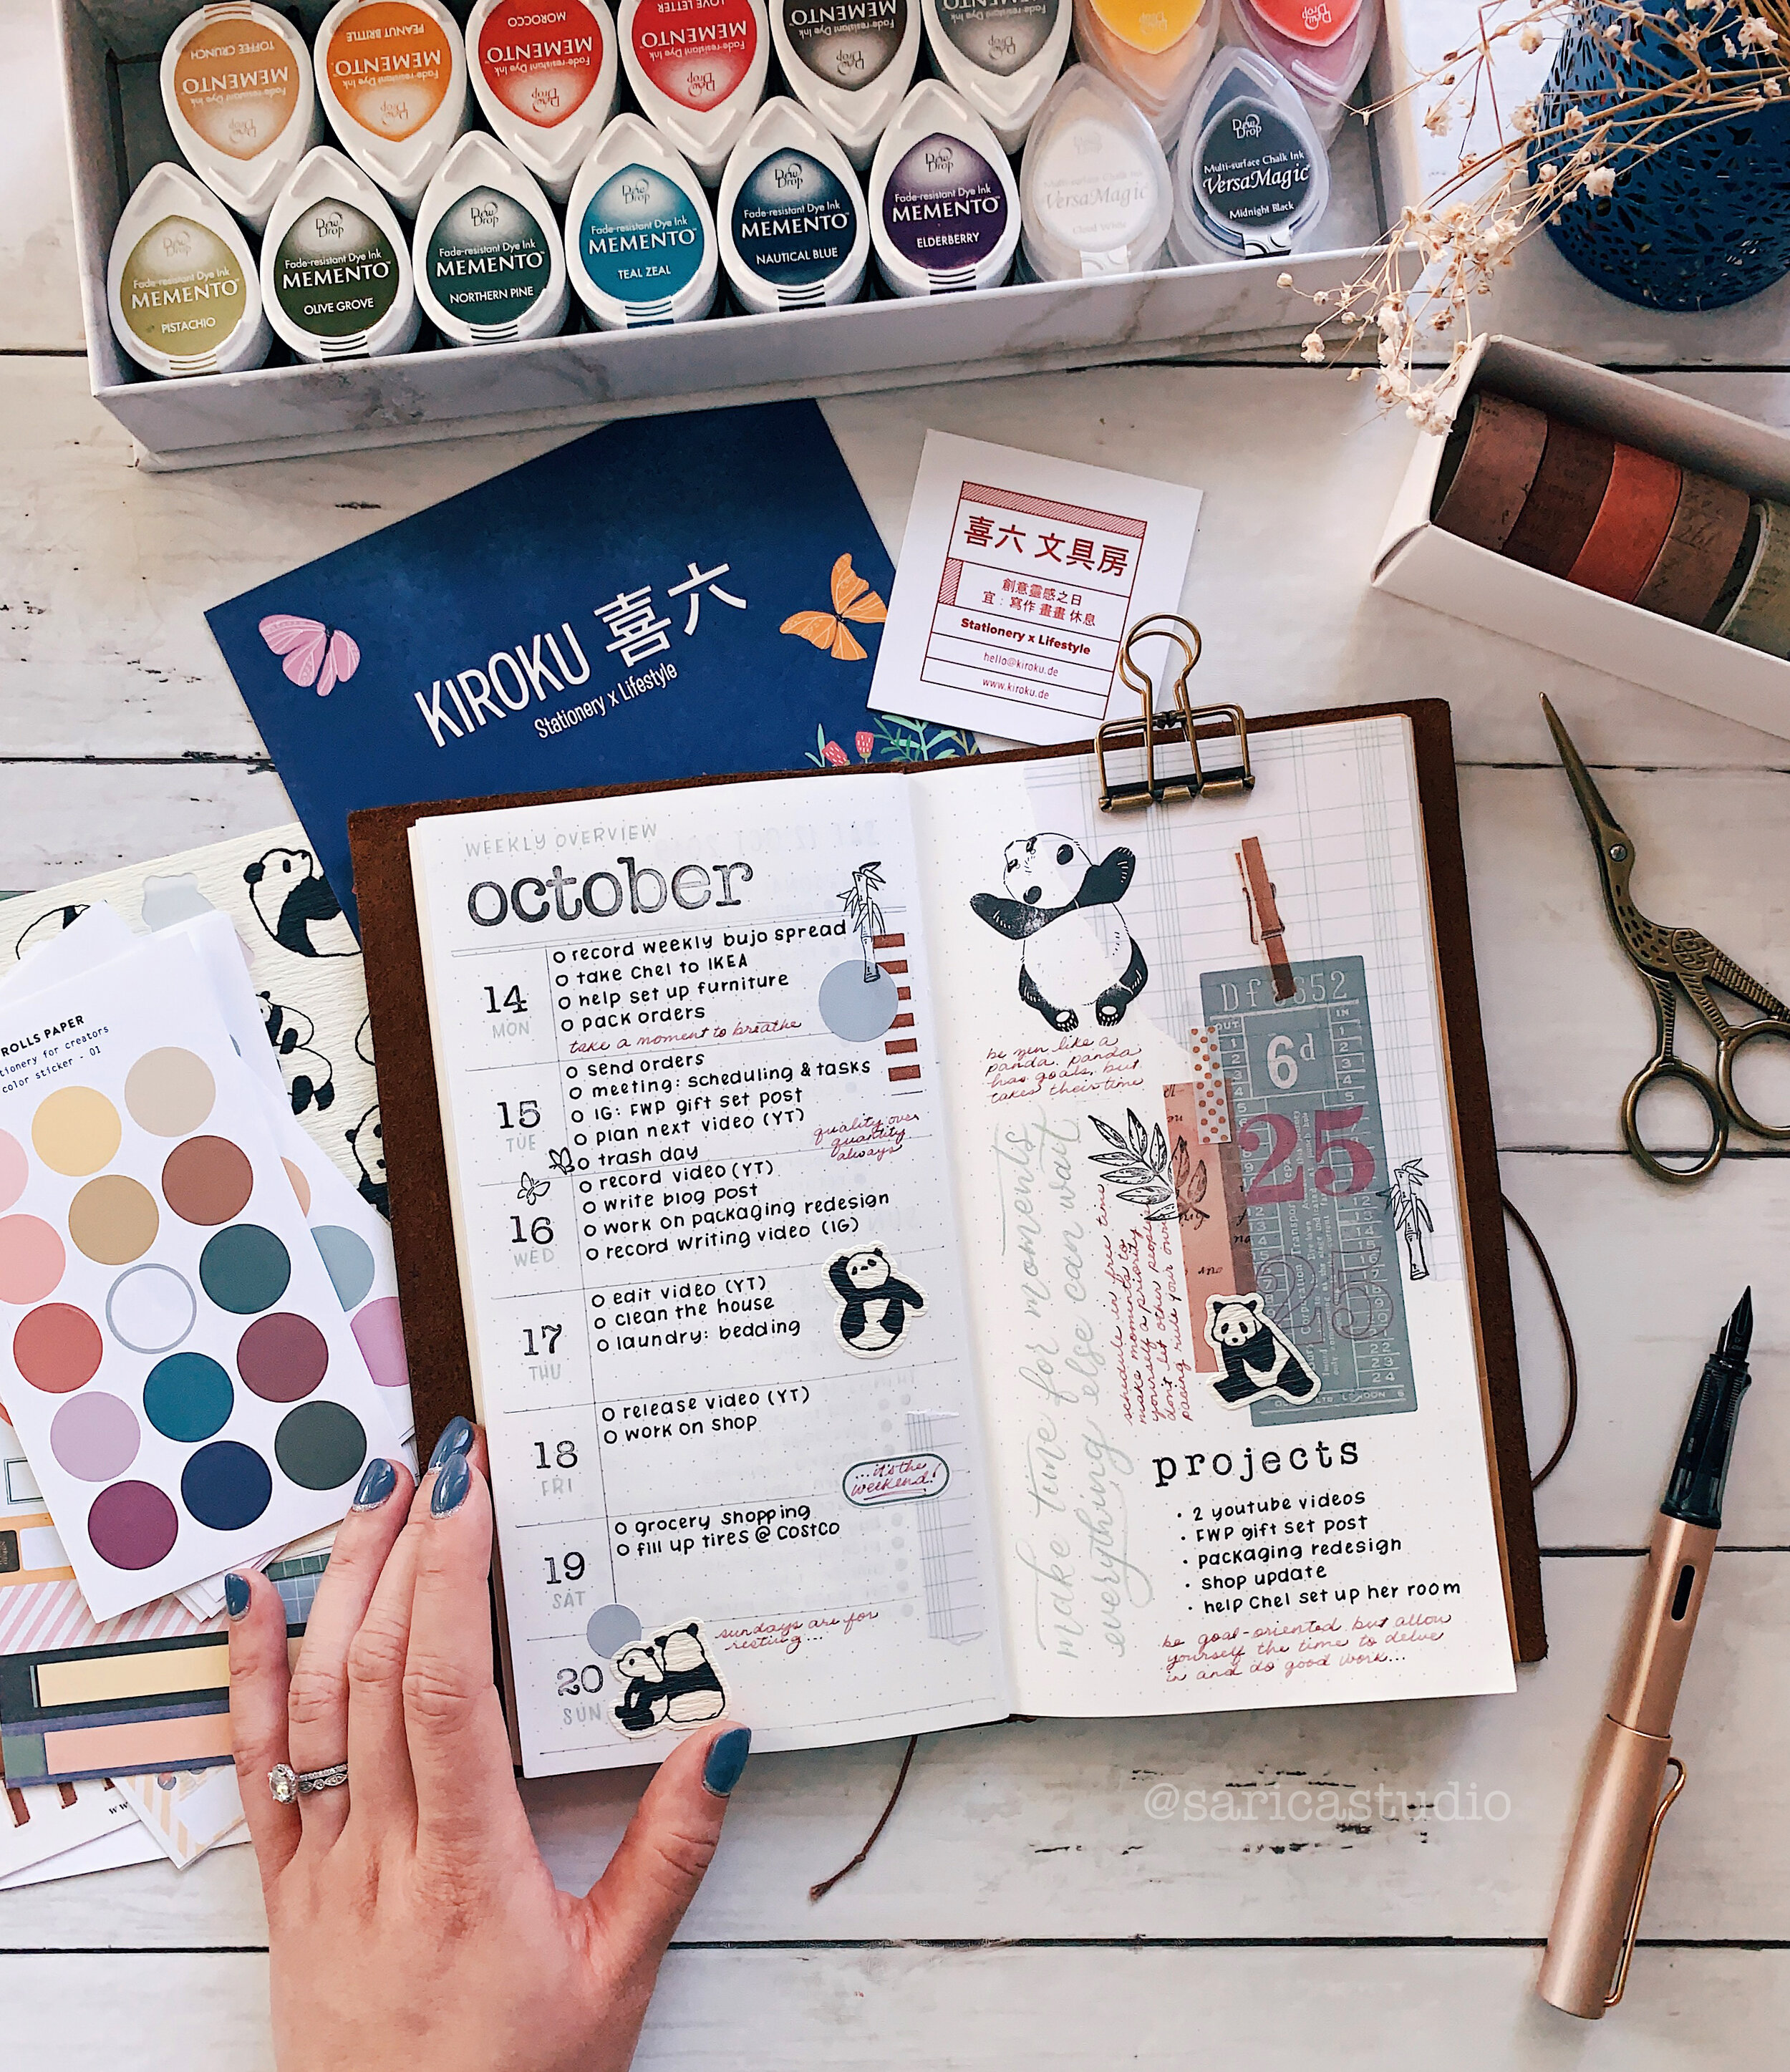 TOFFEE CRUNCH
MEMENTO
Fade-resistant Dye Ink
Dew Drop
PEANUT BRITTLE
MEMENTO
Fade-resistant Dye Ink
Dew Drop
MOROCCO
MEMENTO
Fade-resistant Dye Ink
Dew Drop
LOVE LETTER
MEMENTO
Fade-resistant Dye Ink
Dew Drop
MEMENTO
Fade-resistant Dye Ink
Dew Drop
MEMENTO
Fade-resistant Dye Ink
Dew Drop
Dew Drop
Dew Drop
Dew Drop
Fade-resistant Dye Ink
MEMENTO
PISTACHIO
Dew Drop
Fade-resistant Dye Ink
MEMENTO
OLIVE GROVE
Dew Drop
Fade-resistant Dye Ink
MEMENTO
NORTHERN PINE
Dew Drop
Fade-resistant Dye Ink
MEMENTO™
TEAL ZEAL
Dew Drop
Fade-resistant Dye Ink
MEMENTO™
NAUTICAL BLUE
Dew Drop
Fade-resistant Dye Ink
MEMENTO™
ELDERBERRY
Multi-surface Chalk Ink
VersaMagic
Cloud White
Dew Drop
Multi-surface Chalk Ink
VersaMagic
Midnight Black
KIROKU 喜六
Stationery x Lifestyle
喜六 文具房
創意靈感之日
宜：寫作 畫畫 休息
Stationery x Lifestyle
hello@kiroku.de
www.kiroku.de
ROLLS PAPER
tionery for creators
color sticker - 01
WEEKLY OVERVIEW
october
14
MON
record weekly bujo spread
take Chel to IKEA
help set up furniture
pack orders
take a moment to breathe
15
TUE
send orders
meeting: scheduling & tasks
IG: FWP gift set post
plan next video (YT)
trash day
quality over
quantity
always
16
WED
record video (YT)
write blog post
work on packaging redesign
record writing video (IG)
17
THU
edit video (YT)
clean the house
laundry: bedding
18
FRI
release video (YT)
work on shop
...it's the
weekend!
19
SAT
grocery shopping
fill up tires @ Costco
20
SUN
sundays are for
resting...
be zen like a
panda. panda
has goals, but
takes their time
make time for moments
everything else can wait
schedule in free time
make moments to
yourself a priority
don't let other people's
pacing rule your own
OUT
IN
6d
25
25
22
23
24
projects
• 2 youtube videos
• FWP gift set post
• packaging redesign
• shop update
• help Chel set up her room
be goal-oriented but allow
yourself the time to delve
in and do good work...
@saricastudio